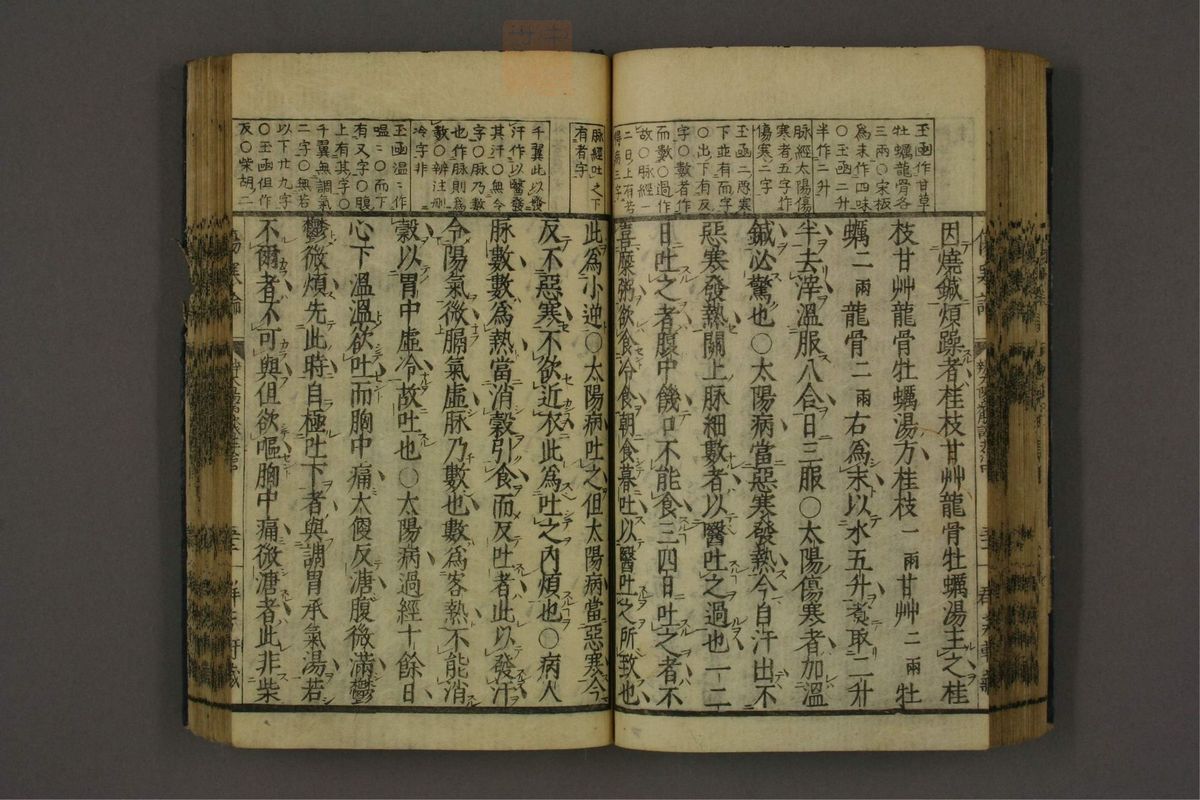 玉函作甘草
牡蠣龍骨各
三兩〇宋板
爲末作四味
〇玉函二升
半作二升
脉經太陽傷
寒者五字作
傷寒二字
玉函二惡寒
下並有而字
〇出下有反
字〇數者作
而數〇過作
故〇脉經一
二日上有若
得病三字
因燒鍼煩躁者桂枝甘艸龍骨牡蠣湯主之桂
枝甘艸龍骨牡蠣湯方桂枝一兩甘艸二兩牡
蠣二兩龍骨二兩右爲末以水五升煮取二升
半去滓溫服八合日三服〇太陽傷寒者加溫
鍼必驚也〇太陽病當惡寒發熱今自汗出不
惡寒發熱關上脉細數者以醫吐之過也一二
日吐之者腹中饑口不能食三四日吐之者不
喜糜粥欲食冷食朝食暮吐以醫吐之所致也
脉經吐之下
有者字
千翼此以發
汗作以醫發
其汗〇無令
字〇脉乃數
也作脉則爲
數〇辨注刪
冷字非
玉函溫〻作
嗢〻〇而下
有又字〇腹
上有其字〇
千翼無調氣
二字〇無若
以下廿九字
〇玉函但作
反〇柴胡二
此爲小逆〇太陽病吐之但太陽病當惡寒今
反不惡寒不欲近衣此爲吐之內煩也〇病人
脉數數爲熱當消穀引食而反吐者此以發汗
令陽氣微膈氣虛脉乃數也數爲客熱不能消
穀以胃中虛冷故吐也〇太陽病過經十餘日
心下溫溫欲吐而胸中痛大便反溏腹微滿鬱
鬱微煩先此時自極吐下者與調胃承氣湯若
不爾者不可與但欲嘔胸中痛微溏者此非柴